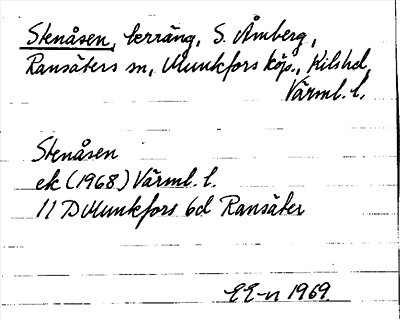 Stenåsen, terräng, S. Åmberg,
Ransäters sn, Munkfors köp., Kils hd,
Värml. l.
Stenåsen
ek (1968) Värml. l.
11 D Munkfors 6d Ransäter
EE-n 1969